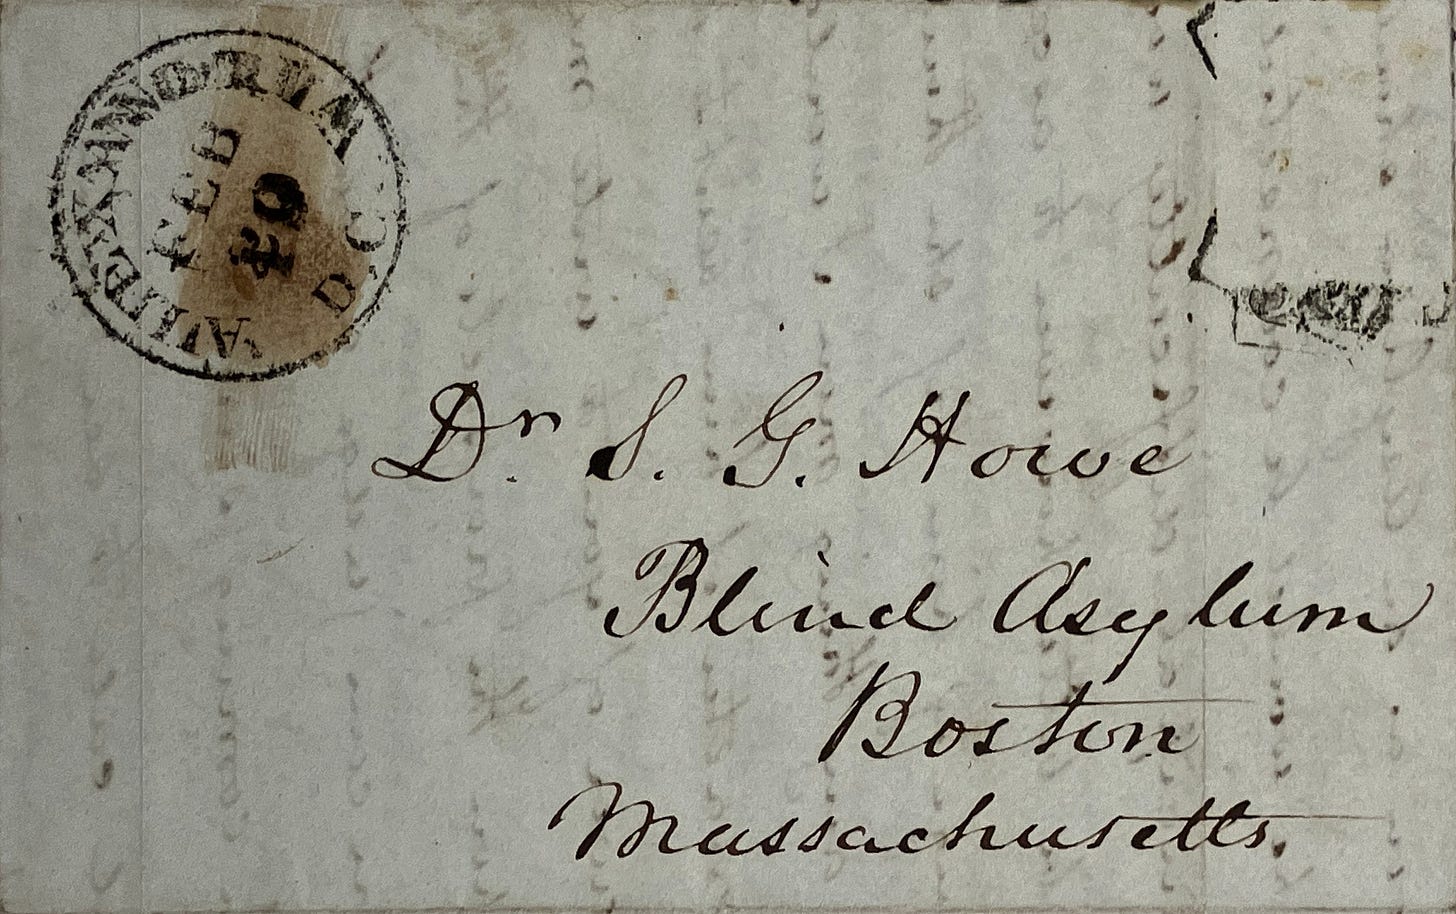 ALEXANDRIA D.C.
FEB
Dr. S. G. Howe
Blind Asylum
Boston
Massachusetts.